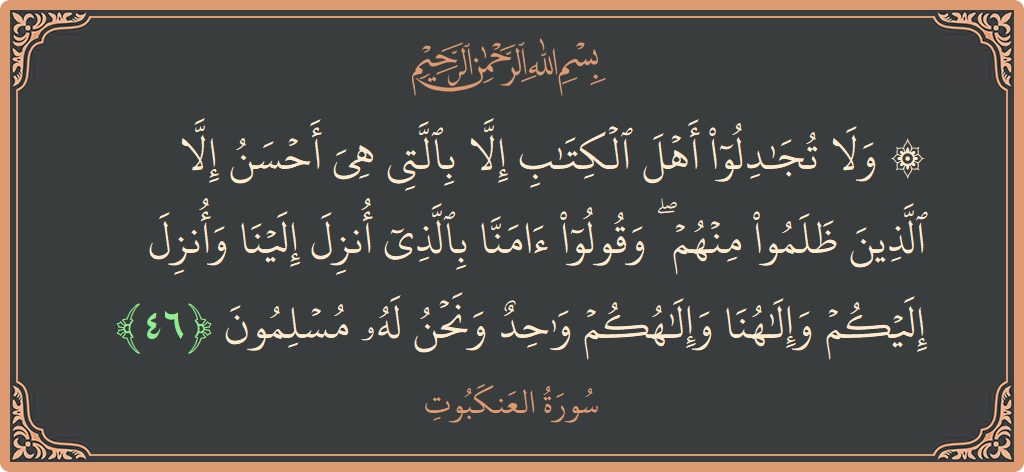 بِسْمِ اللهِ الرَّحْمٰنِ الرَّحِيْمِ
۞ وَلَا تُجَـٰدِلُوٓا۟ أَهْلَ ٱلْكِتَـٰبِ إِلَّا بِٱلَّتِى هِىَ أَحْسَنُ إِلَّا
ٱلَّذِينَ ظَلَمُوا۟ مِنْهُمْ ۖ وَقُولُوٓا۟ ءَامَنَّا بِٱلَّذِىٓ أُنزِلَ إِلَيْنَا وَأُنزِلَ
إِلَيْكُمْ وَإِلَـٰهُنَا وَإِلَـٰهُكُمْ وَٰحِدٌ وَنَحْنُ لَهُۥ مُسْلِمُونَ ﴿٤٦﴾
سُورَةُ العَنكَبُوتِ